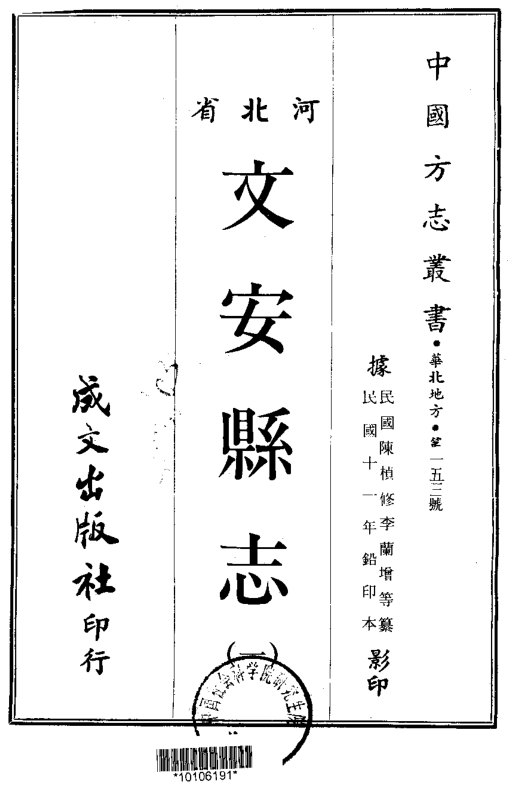 中國方志叢書·華北地方·第一五三號
據
民國陳楨修李蘭增等纂
民國十一年鉛印本
影印
河北省
文安縣志
(一)
成文出版社印行
中國社會科學院研究生院
*10106191*